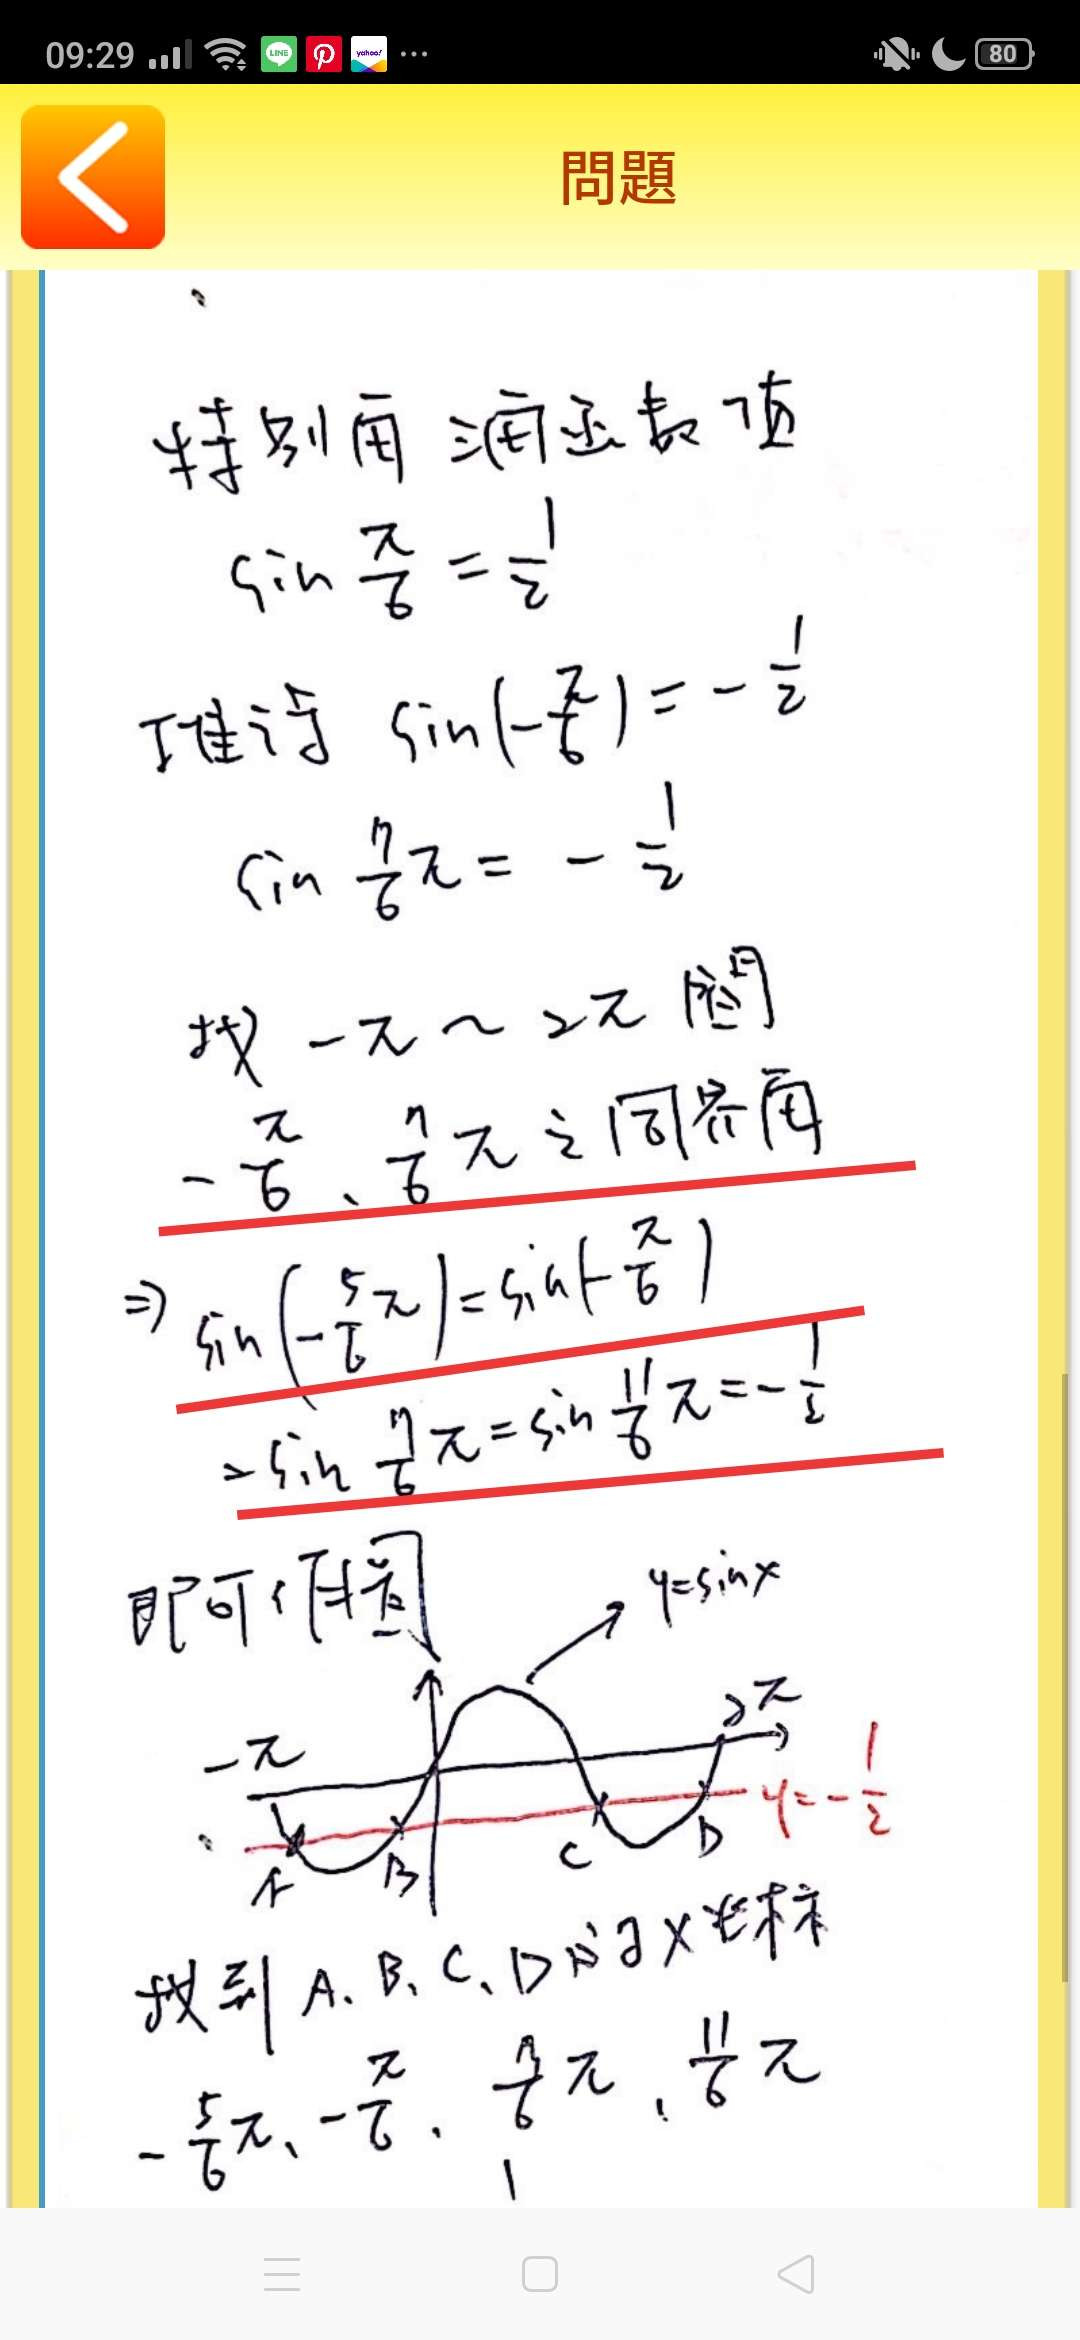 09:29 LINE yahoo! ... 80
問題
特別角三角函數值
sin π/6 = 1/2
推得 sin(-π/6) = -1/2
sin 7/6 π = -1/2
找 -π ~ 2π 間
-π/6、7/6 π 之同界角
⇒ sin(-5/6 π) = sin(-π/6)
= sin 7/6 π = sin 11/6 π = -1/2
即可作圖
y=sinx
-π 2π
y=-1/2
A B C D
找到 A、B、C、D 的 x 坐標
-5/6 π、-π/6、7/6 π、11/6 π